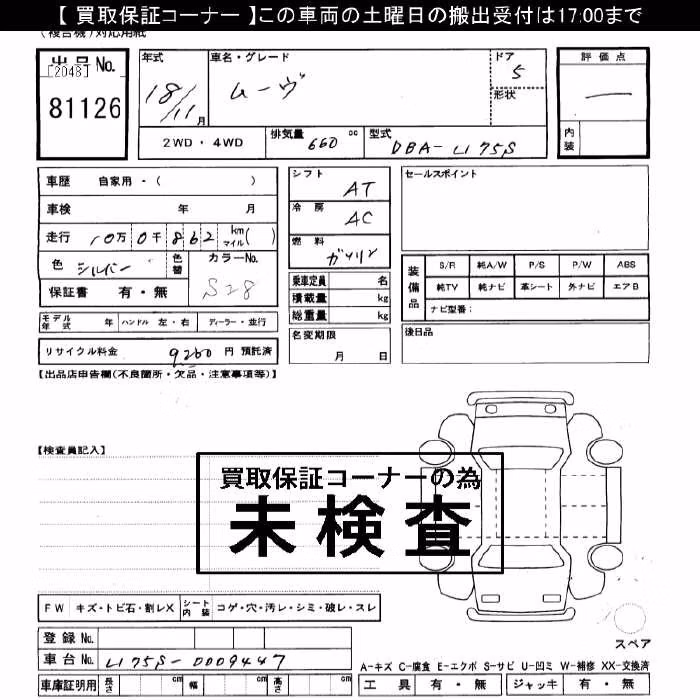 【 買取保証コーナー 】この車両の土曜日の搬出受付は17:00まで
(複合機)対応用紙
出品No.
[2048]
81126
年式
18/11月
車名・グレード
ムーヴ
ドア
5
形状
評価点
一
内装
2WD・4WD
排気量 660 cc
型式 DBA-L175S
車歴 自家用・( )
車検 年 月
走行 10万0千862 km マイル( )
色 シルバー 色替
カラーNo. S28
保証書 有・無
シフト AT
冷房 AC
燃料 ガソリン
乗車定員 名
積載量 kg
総重量 kg
セールスポイント
装備品
S/R 純A/W P/S P/W ABS
純TV 純ナビ 革シート 外ナビ エアB
ナビ型番:
モデル年式 年 ハンドル 左・右 ディーラー・並行
名変期限
月 日
後日品
リサイクル料金 9260 円 預託済
【出品店申告欄(不良箇所・欠品・注意事項等)】
【検査員記入】
買取保証コーナーの為
未検査
FW キズ・トビ石・割レX シート内装 コゲ・穴・汚レ・シミ・破レ・スレ
登録No.
車台No. L175S-0009447
スペア
A-キズ C-腐食 E-エクボ S-サビ U-凹ミ W-補修 XX-交換済
車庫証明用 長さ cm 幅 cm 高さ cm
工具 有・無 ジャッキ 有・無